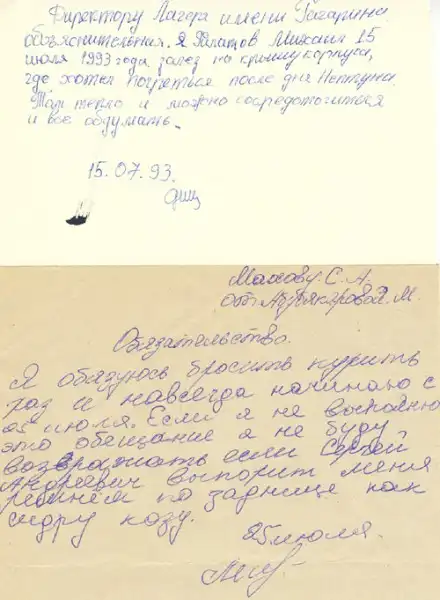 Директору Лагеря имени Гагарина
объяснительная. Я Филатов Михаил 15
июля 1993 года залез на крышу корпуса,
где хотел погреться после дня Нептуна.
Там тепло и можно сосредоточиться
и все обдумать.
15.07.93.
Махову. С. А.
от М.
Обязательство.
Я обязуюсь бросить курить
раз и навсегда начиная с
25 июля. Если я не выполню
это обещание я не буду
возвражать если Сергей
Андреевич выпорит меня
ремнём по заднице как
сидру козу.
25 июля.